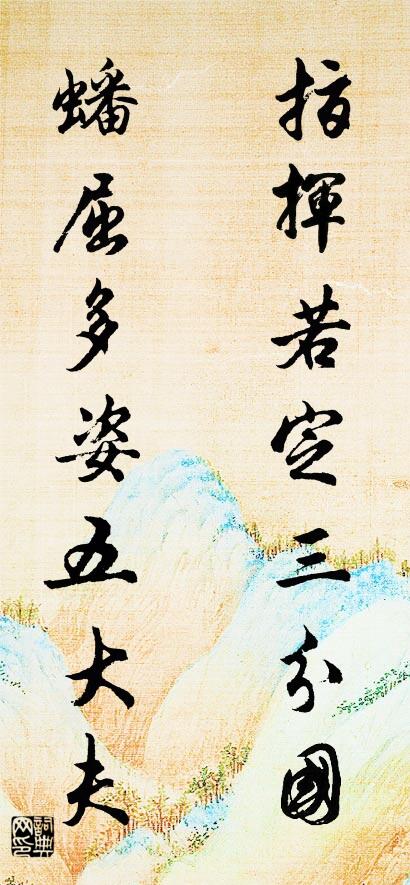 指揮若定三分國
蟠屈多姿五大夫
詞典网印